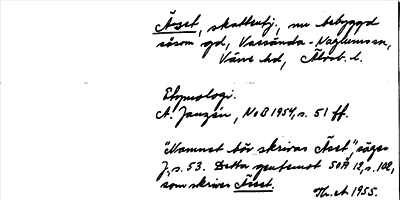 Äset, skatteutj., nu bebyggd
såsom gd, Vassända-Naglumssn,
Väne hd, Älvsb. l.
Etymologi.
A. Janzén, NoB 1954, s. 51 ff.
"Namnet bör skrivas Äset", säger
J., s. 53. Detta gentemot SOÄ 12, s. 102,
som skriver Ässet.
Th. A 1955.